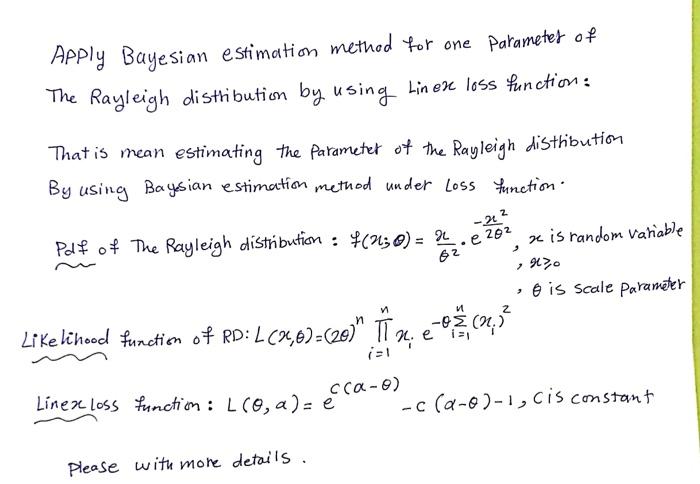 Apply Bayesian estimation method for one Parameter of
The Rayleigh distribution by using Linex loss function:
That is mean estimating the Parameter of the Rayleigh distribution
By using Baysian estimation method under Loss function.
Pdf of The Rayleigh distribution : f(x;θ) = x/θ² . e^(-x²/2θ²) , x is random variable
, x≥0
, θ is scale parameter
Likelihood function of RD: L(x,θ)=(2θ)^n ∏_{i=1}^{n} x_i e^(-θ∑_{i=1}^{n}(x_i)²)
Linex loss function : L(θ,a)= e^(c(a-θ)) -c(a-θ)-1, C is constant
Please with more details .